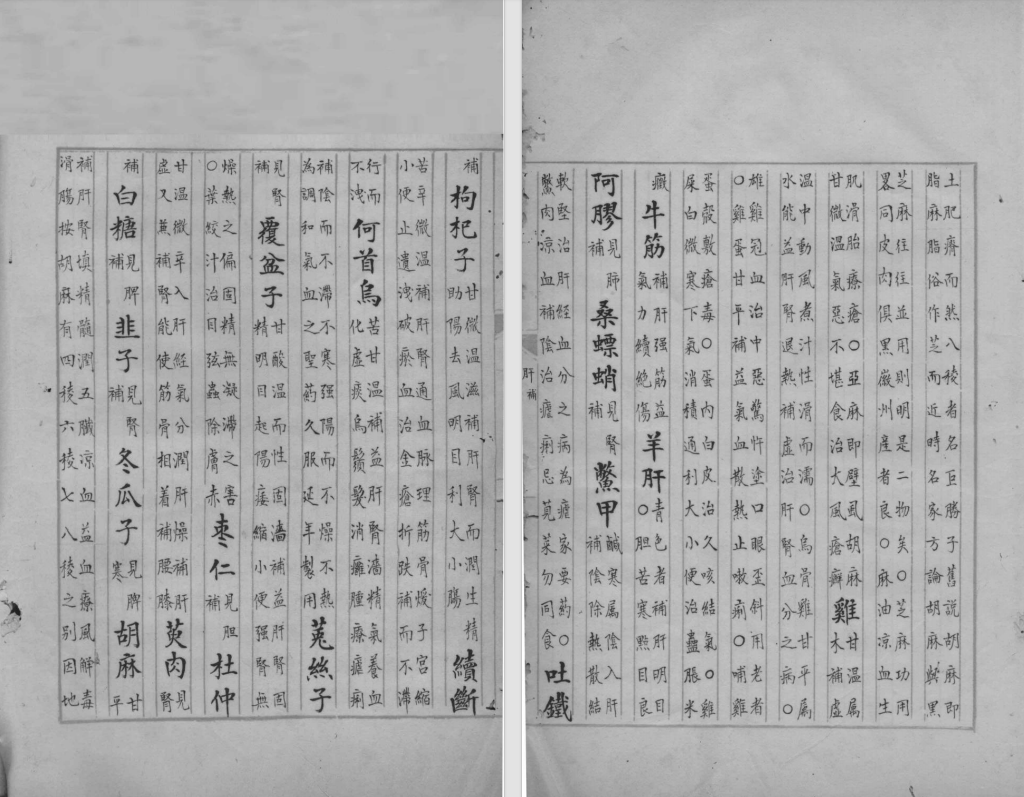 補枸杞子甘微溫滋補肝腎而潤生精助陽去風明目利大小腸續斷
苦辛微溫補肝腎通血脈理筋骨煖子宮縮
小便止遺洩破瘀血治金瘡折跌補而不滯
行而不洩何首烏苦甘溫補益肝腎濇精氣養血化虛痰烏鬚髮消癰腫療瘧痢
補陰而不滯不寒强陽而不燥不熱為調和氣血之聖葯久服延年製用菟絲子
見腎補覆盆子甘酸溫而性固濇補益肝腎固精明目起陽痿縮小便强腎無
燥熱之偏固精無凝滯之害○葉絞汁治目弦蟲除膚赤棗仁見胆補杜仲
甘溫微辛入肝經氣分潤肝燥補肝虛又兼補腎能使筋骨相着補腰膝萸肉見腎
補白糖見脾補韭子見腎補冬瓜子見脾寒胡麻甘平
補肝腎填精髓潤五臟涼血益血療風解毒
滑腸按胡麻有四稜六稜七八稜之別因地
肝補
土肥瘠而然八稜者名巨勝子舊説胡麻即
脂麻脂俗作芝而近時名家方論胡麻與黑
芝麻往往並用則明是二物矣○芝麻功用
畧同皮肉俱黑徽州產者良○麻油凉血生
肌滑胎療瘡○亞麻即壁風胡麻甘微溫氣惡不堪食治大風瘡癬雞甘溫屬木補虛
溫中動風煮汁性滑而濡○烏骨雞甘平屬
水能益肝腎退熱補虛治肝腎血分之病○
雄雞冠血治中惡驚忤塗口眼歪斜用老者
○雞蛋甘平補益氣血散熱止嗽痢○哺雞
蛋殼敷瘡毒○蛋內白皮治久咳結氣○雞
屎白微寒下氣消積通利大小便治蠱脹米
癥牛筋補肝强筋益氣力續絕傷羊肝青色者補肝明目○胆苦寒點目良
阿膠見肺補桑螵蛸見腎補鱉甲鹹寒屬陰入肝補陰除熱散結
軟堅治肝經血分之病為瘧家要葯○鱉肉涼血補陰治瘧痢忌莧菜勿同食吐鐵